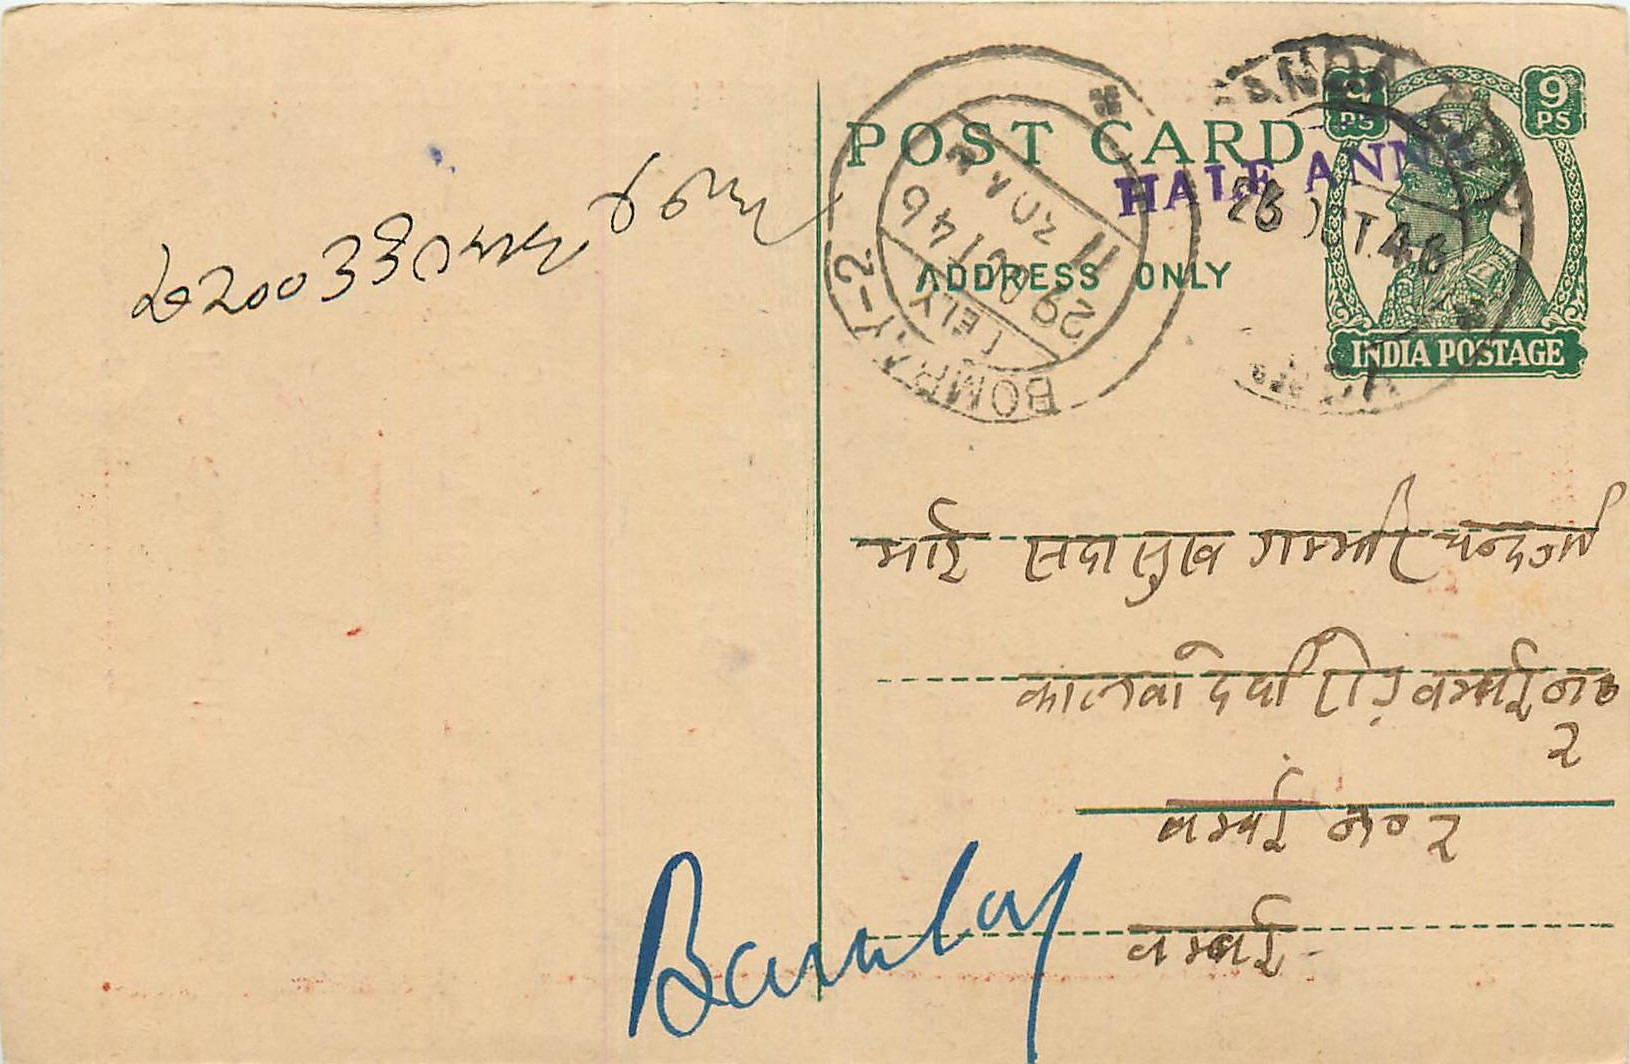 POST CARD
HALF ANNA
ADDRESS ONLY
9 PS
9 PS
INDIA POSTAGE
BOMBAY-2
DELY
29 OCT 46
11 30 AM
26 OCT 46
भाई सदासुख गम्भीरचन्दजी
कालबादेवी रोड़ बम्बई नं०
२
बम्बई नं० २
बम्बई
Bombay